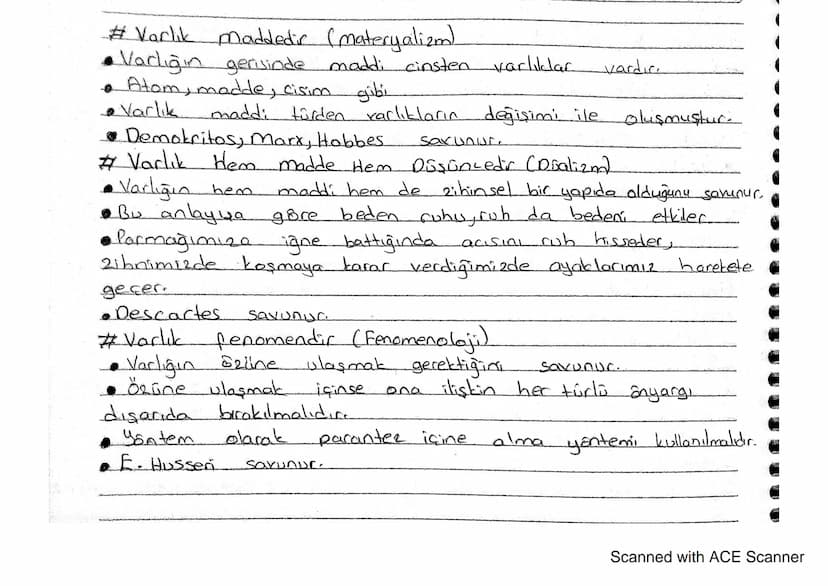 # Varlık maddedir (materyalizm)
• Varlığın gerisinde maddi cinsten varlıklar vardır.
• Atom, madde, cisim gibi
• Varlık maddi türden varlıkların değişimi ile oluşmuştur.
• Demokritos, Marx, Hobbes savunur.
# Varlık Hem madde Hem Düşüncedir (Düalizm)
• Varlığın hem maddi hem de zihinsel bir yapıda olduğunu savunur.
• Bu anlayışa göre beden ruhu, ruh da bedeni etkiler
• Parmağımıza iğne battığında acısını ruh hisseder,
zihnimizde koşmaya karar verdiğimizde ayaklarımız harekete
geçer.
• Descartes savunur.
# Varlık fenomendir (Fenomenoloji)
• Varlığın özüne ulaşmak gerektiğini savunur.
• Özüne ulaşmak içinse ona ilişkin her türlü önyargı
dışarıda bırakılmalıdır.
• Yöntem olarak parantez içine alma yöntemi kullanılmalıdır.
• E. Husserl savunur.
Scanned with ACE Scanner